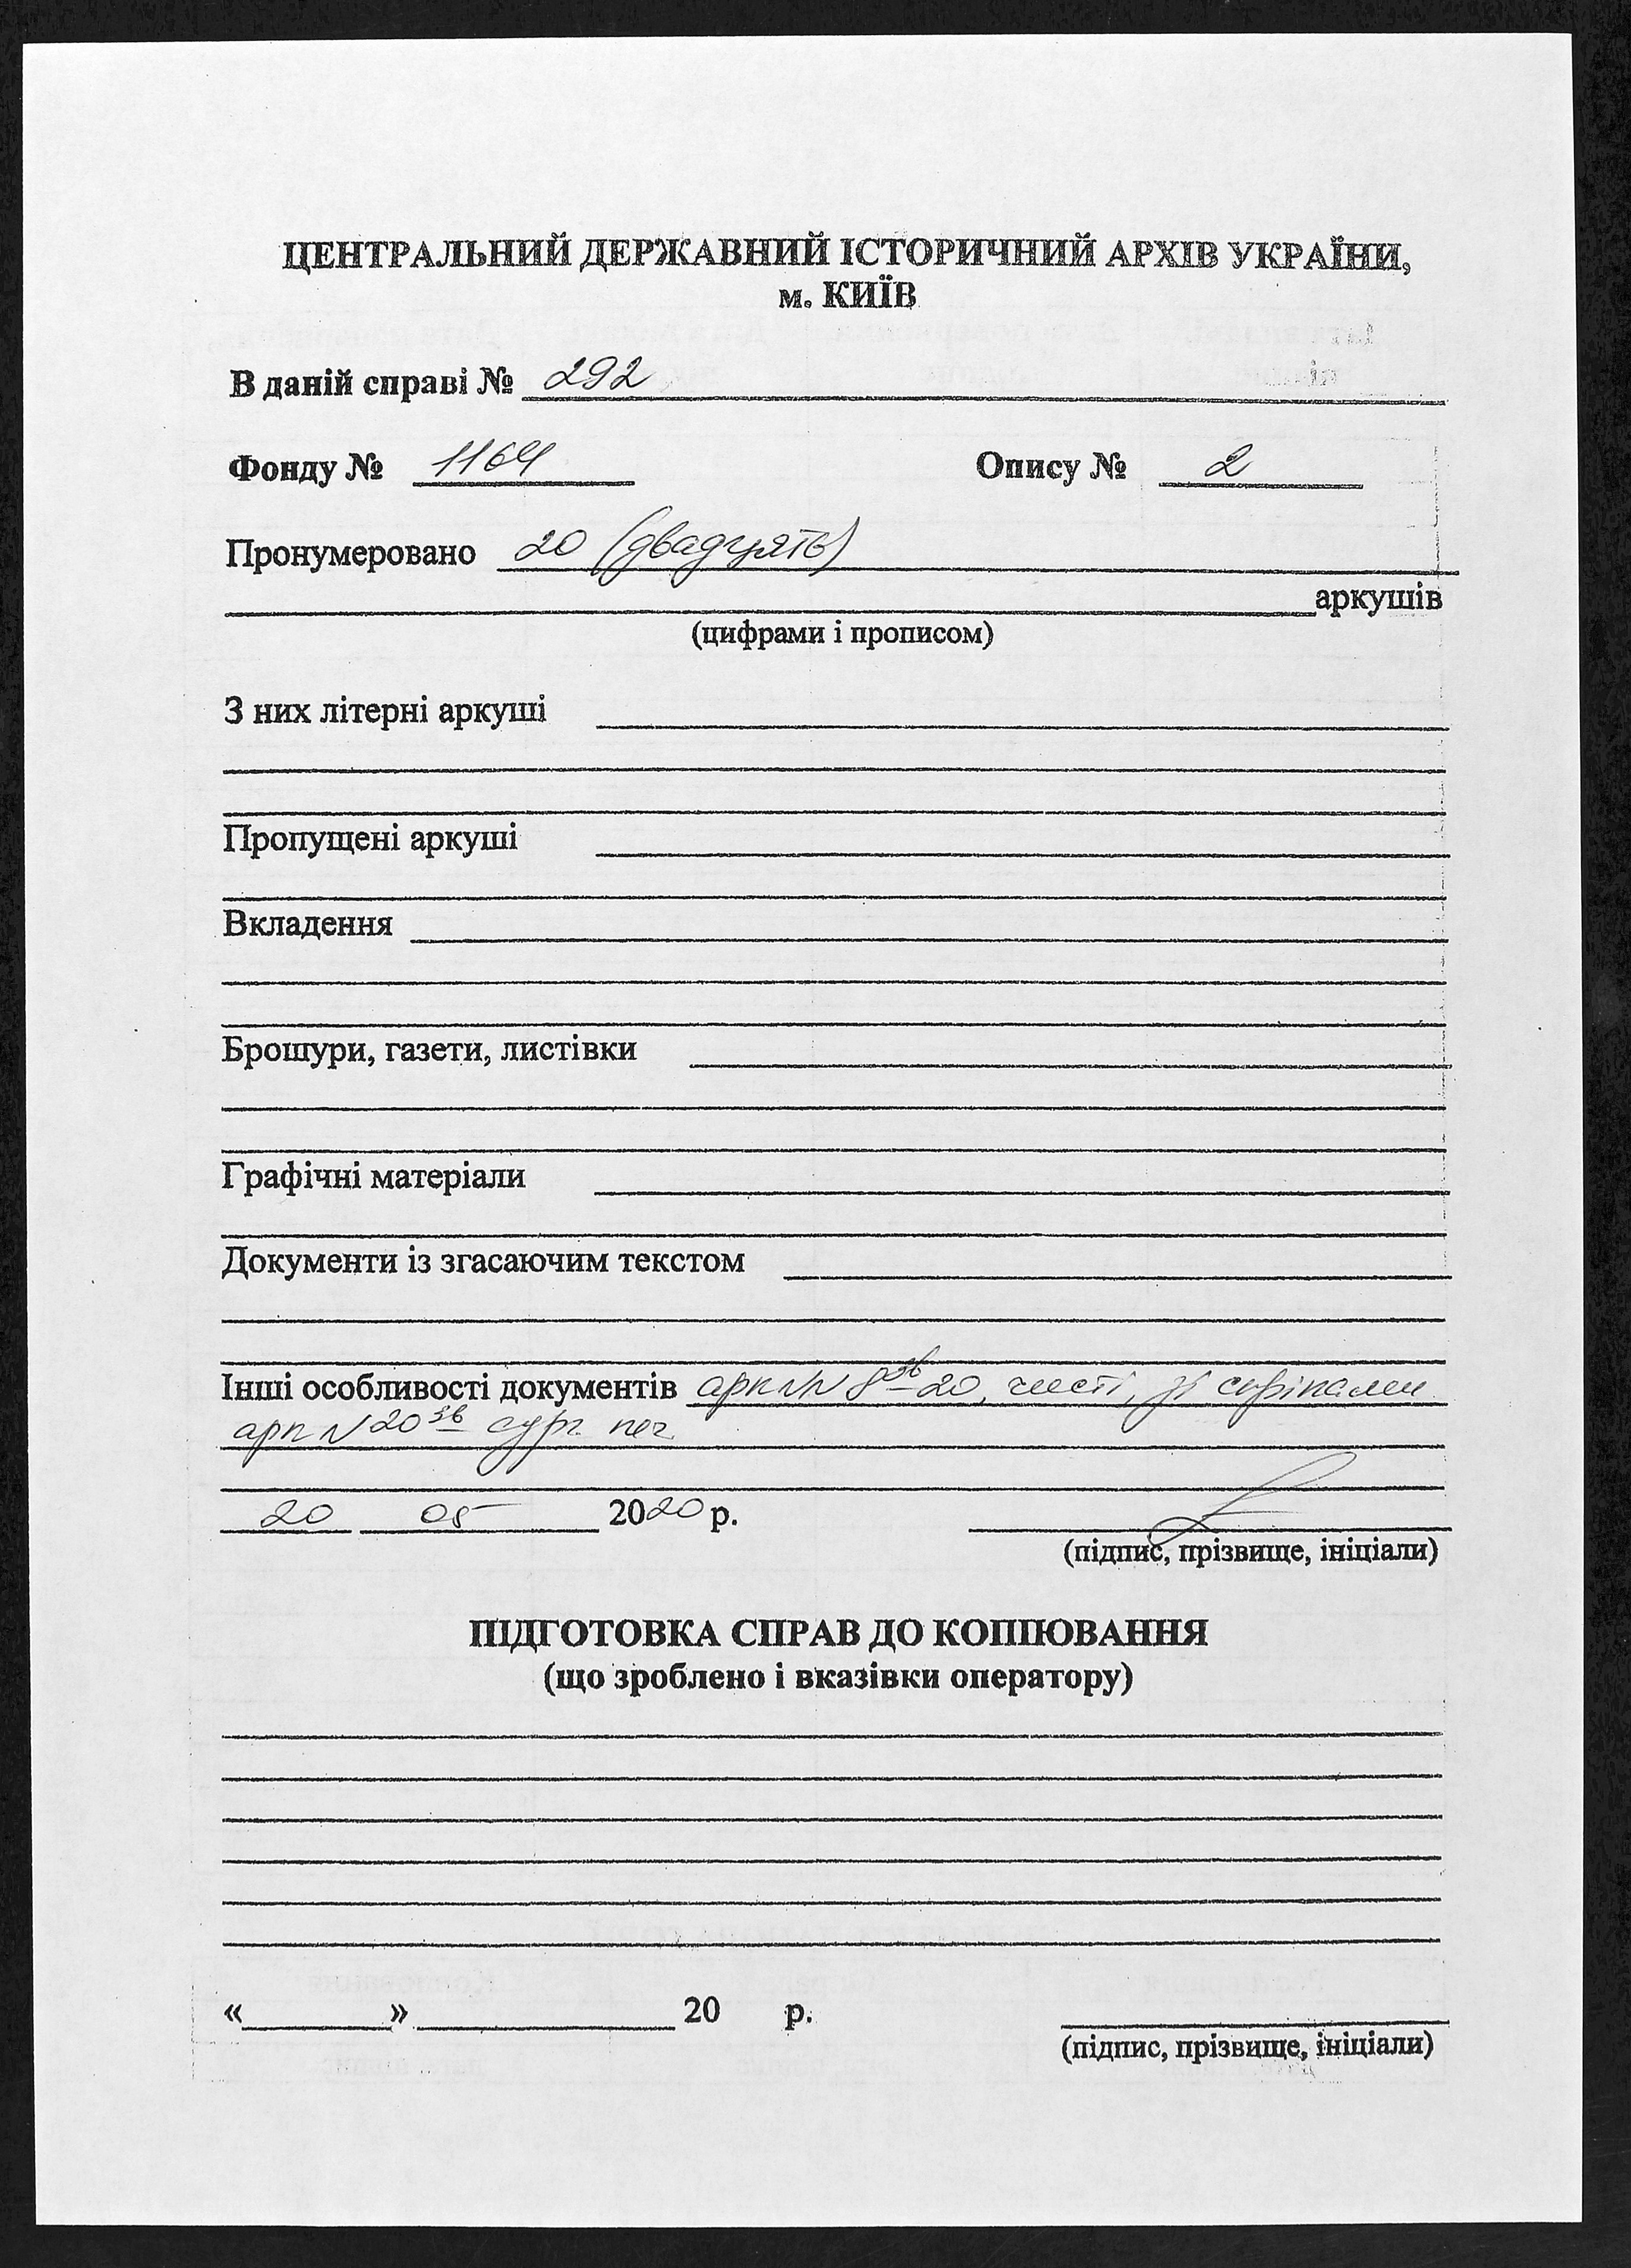 ЦЕНТРАЛЬНИЙ ДЕРЖАВНИЙ ІСТОРИЧНИЙ АРХІВ УКРАЇНИ,
м. КИЇВ
В даній справі № 292
Фонду № 1164 Опису № 2
Пронумеровано 20 (двадцять)
аркушів
(цифрами і прописом)
З них літерні аркуші
Пропущені аркуші
Вкладення
Брошури, газети, листівки
Графічні матеріали
Документи із згасаючим текстом
Інші особливості документів арк NN 8зв-20, чисті, зі скріпами
арк N 20зв сург. печ
20 05 2020 р.
(підпис, прізвище, ініціали)
ПІДГОТОВКА СПРАВ ДО КОПІЮВАННЯ
(що зроблено і вказівки оператору)
«       »        20    р.
(підпис, прізвище, ініціали)